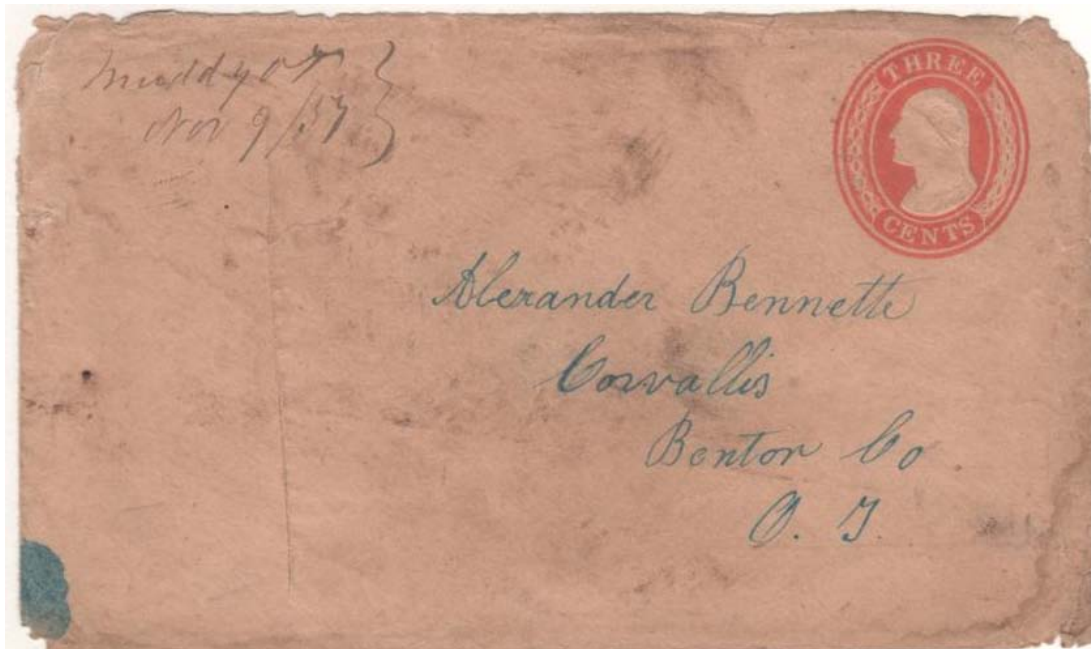 Muddy O T
Nov 9/57
THREE
CENTS
Alexander Bennette
Corvallis
Benton Co
O. T.